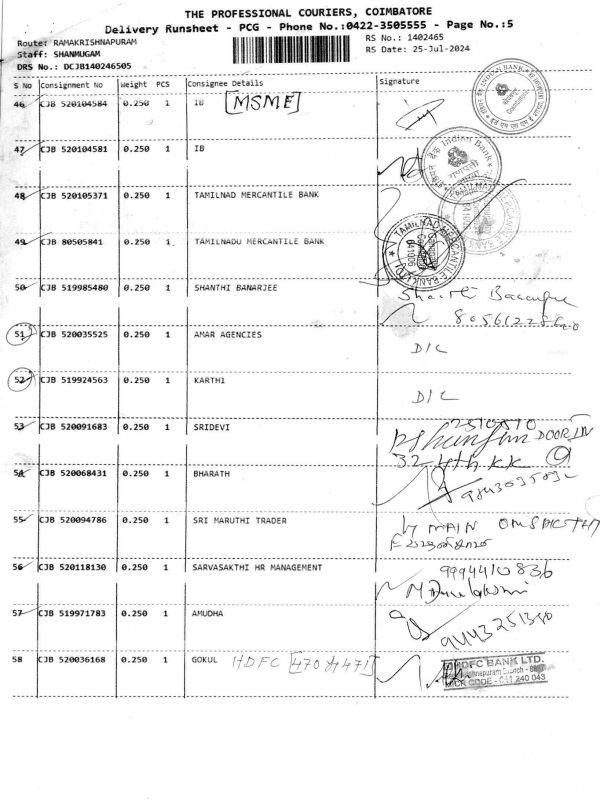 THE PROFESSIONAL COURIERS, COIMBATORE
Delivery Runsheet - PCG - Phone No.:0422-3505555 - Page No.:5
Route: RAMAKRISHNAPURAM
RS No.: 1402465
Staff: SHANMUGAM
RS Date: 25-Jul-2024
DRS No.: DCJB140246505
S No Consignment No Weight PCS Consignee Details Signature
46 CJB 520104584 0.250 1 IB [MSME]
47 CJB 520104581 0.250 1 IB
Indian Bank
48 CJB 520105371 0.250 1 TAMILNAD MERCANTILE BANK
49 CJB 80505841 0.250 1 TAMILNADU MERCANTILE BANK
TAMILNAD MERCANTILE BANK LTD
641006
50 CJB 519985480 0.250 1 SHANTHI BANARJEE
51 CJB 520035525 0.250 1 AMAR AGENCIES D/C
52 CJB 519924563 0.250 1 KARTHI D/C
53 CJB 520091683 0.250 1 SRIDEVI
2510510
DOOR IN
32 4th KK
54 CJB 520068431 0.250 1 BHARATH
55 CJB 520094786 0.250 1 SRI MARUTHI TRADER
MAIN
56 CJB 520118130 0.250 1 SARVASAKTHI HR MANAGEMENT
9994410836
57 CJB 519971783 0.250 1 AMUDHA
9443251380
58 CJB 520036168 0.250 1 GOKUL HDFC [470 471]
HDFC BANK LTD.
MICR CODE - 641 240 043